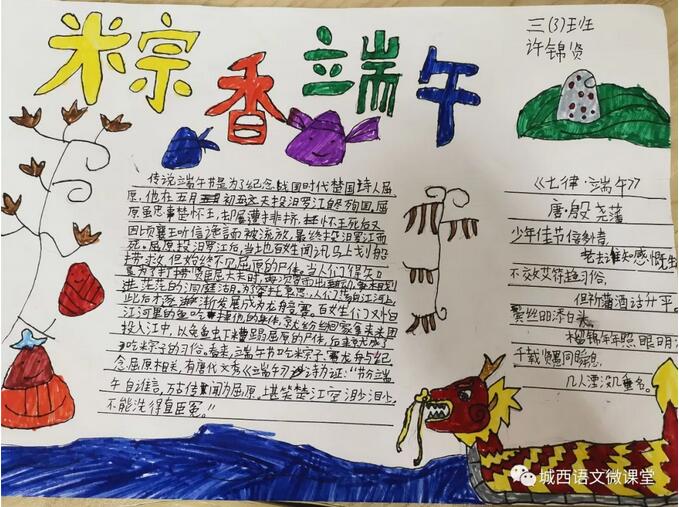 粽香端午
三(3)班
许锦贤
传说端午节是为了纪念战国时代楚国诗人屈
原,他在五月初五这天投汨罗江自尽殉国,屈
原虽忠事楚怀王,却屡遭排挤,怀王死后又
因顷襄王听信谗言而被流放,最终投汨罗江而
死。屈原投汨罗江后,当地百姓闻讯马上划船
捞救,但始终不见屈原的尸体。当人们得知
是为了打捞贤臣屈大夫时,再次冒雨出动
进茫茫的洞庭湖。为寄托哀思,人们荡舟江河上,
此后才逐渐发展成为龙舟竞赛。百姓们又怕
江河里的鱼吃掉他的身体,就纷纷回家拿来米团
投入江中,以免鱼虾糟蹋屈原的尸体,后来就成了
吃粽子的习俗。看来,端午节吃粽子、赛龙舟与纪
念屈原相关,有唐代文秀《端午》诗为证:“节分端
午自谁言,万古传闻为屈原,堪笑楚江空渺渺,
不能洗得直臣冤。”
《七律·端午》
唐·殷尧藩
少年佳节倍多情,
老去谁知感慨生
不效艾符趋习俗,
但祈蒲酒话升平。
鬓丝日日添白头,
榴锦年年照眼明
千载贤愚同瞬息,
几人湮没几垂名。
城西语文微课堂